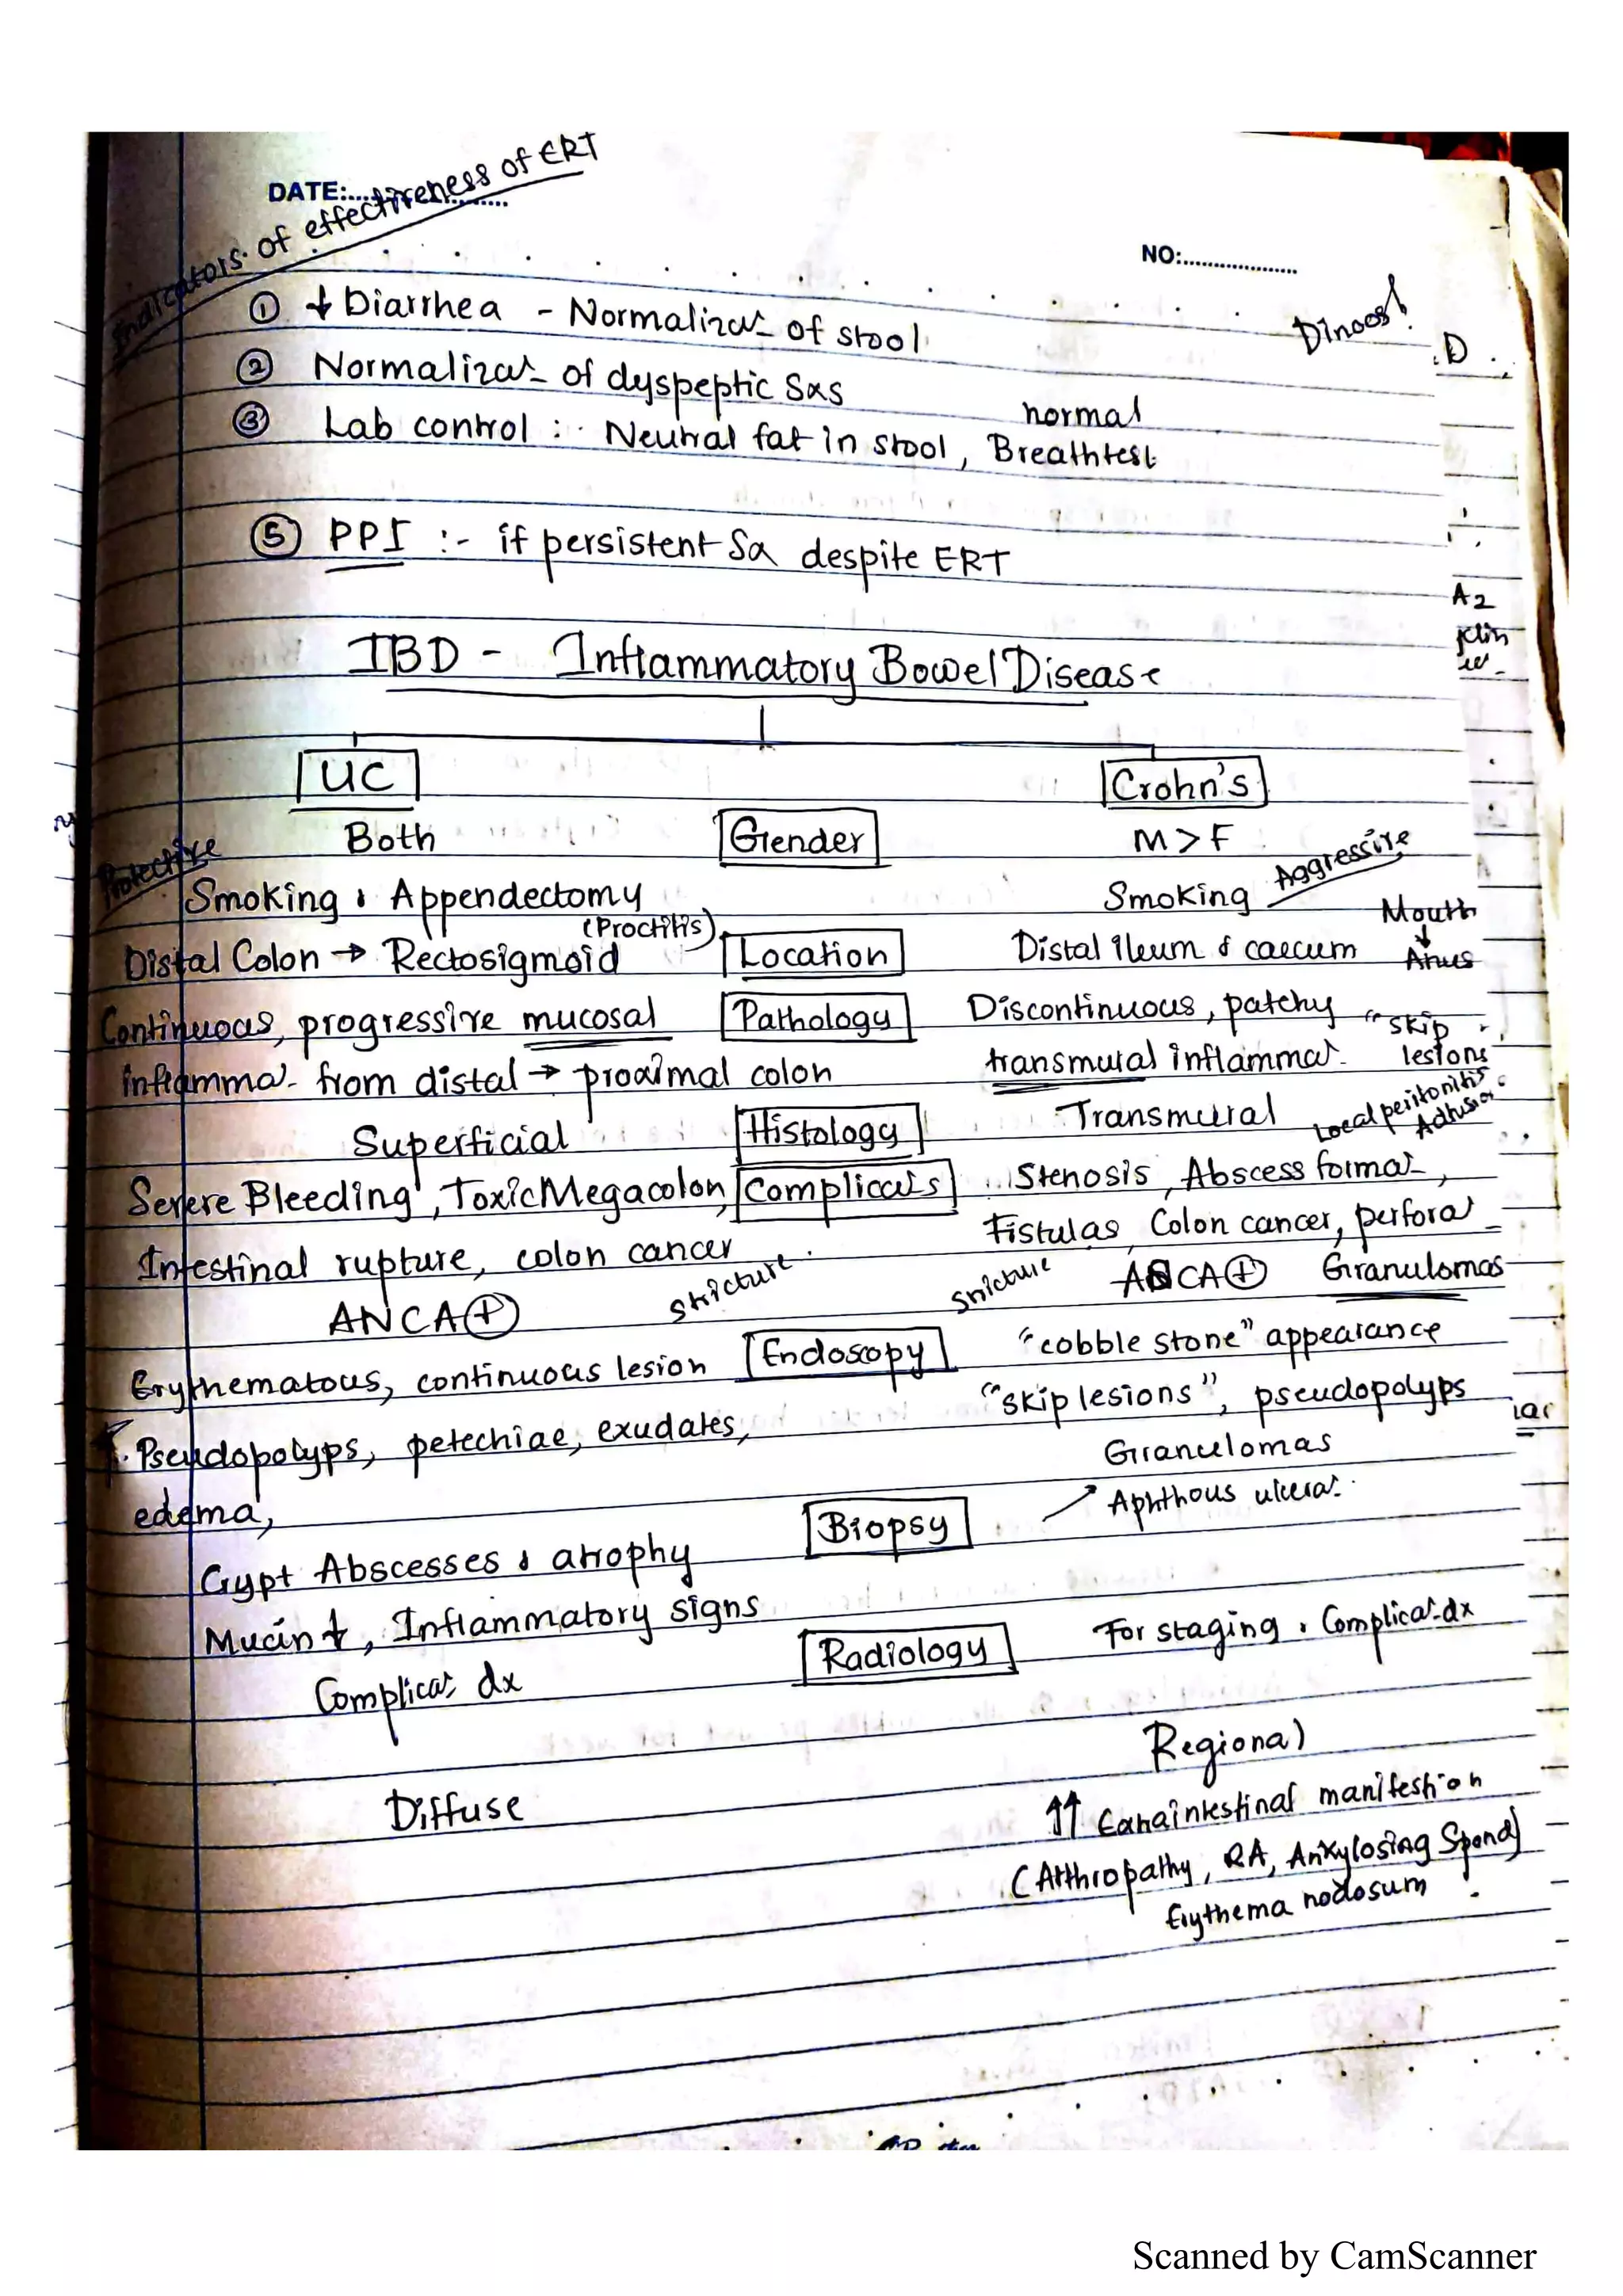 Indicators of effectiveness of ERT
DATE:....................
NO:...................
Dinoos!
① ↓ Diarrhea - Normalizaⁿ of stool
② Normalizaⁿ of dyspeptic Sxs
normal
③ Lab control : Neutral fat in stool, Breathtest
⑤ PPI :- if persistent Sx despite ERT
IBD - Inflammatory Bowel Disease
UC Crohn's
Both Gender M > F
Protective Smoking & Appendectomy Smoking Aggressive
Distal Colon → Rectosigmoid (Proctitis) Location Distal ileum & caecum Mouth ↓ Anus
Continuous, progressive mucosal Pathology Discontinuous, patchy "skip
inflammaⁿ from distal → proximal colon transmural inflammaⁿ lesions
Superficial Histology Transmural Local peritonitis Adhesion
Severe Bleeding, Toxic Megacolon, Complicaⁿs Stenosis, Abscess formaⁿ,
Intestinal rupture, colon cancer Fistulas, Colon cancer, perforaⁿ
ANCA⊕ stricture stricture ASCA⊕ Granulomas
Erythematous, continuous lesion Endoscopy "cobble stone" appearance
Pseudopolyps, petechiae, exudates, "skip lesions", pseudopolyps
edema, Granulomas
Crypt Abscesses & atrophy Biopsy Aphthous ulceraⁿ
Mucin ↓, Inflammatory signs
Complicaⁿ dx Radiology For staging & Complicaⁿ dx
Diffuse Regional
↑↑ Extraintestinal manifestion
(Arthropathy, RA, Ankylosing Spond)
Erythema nodosum
Scanned by CamScanner